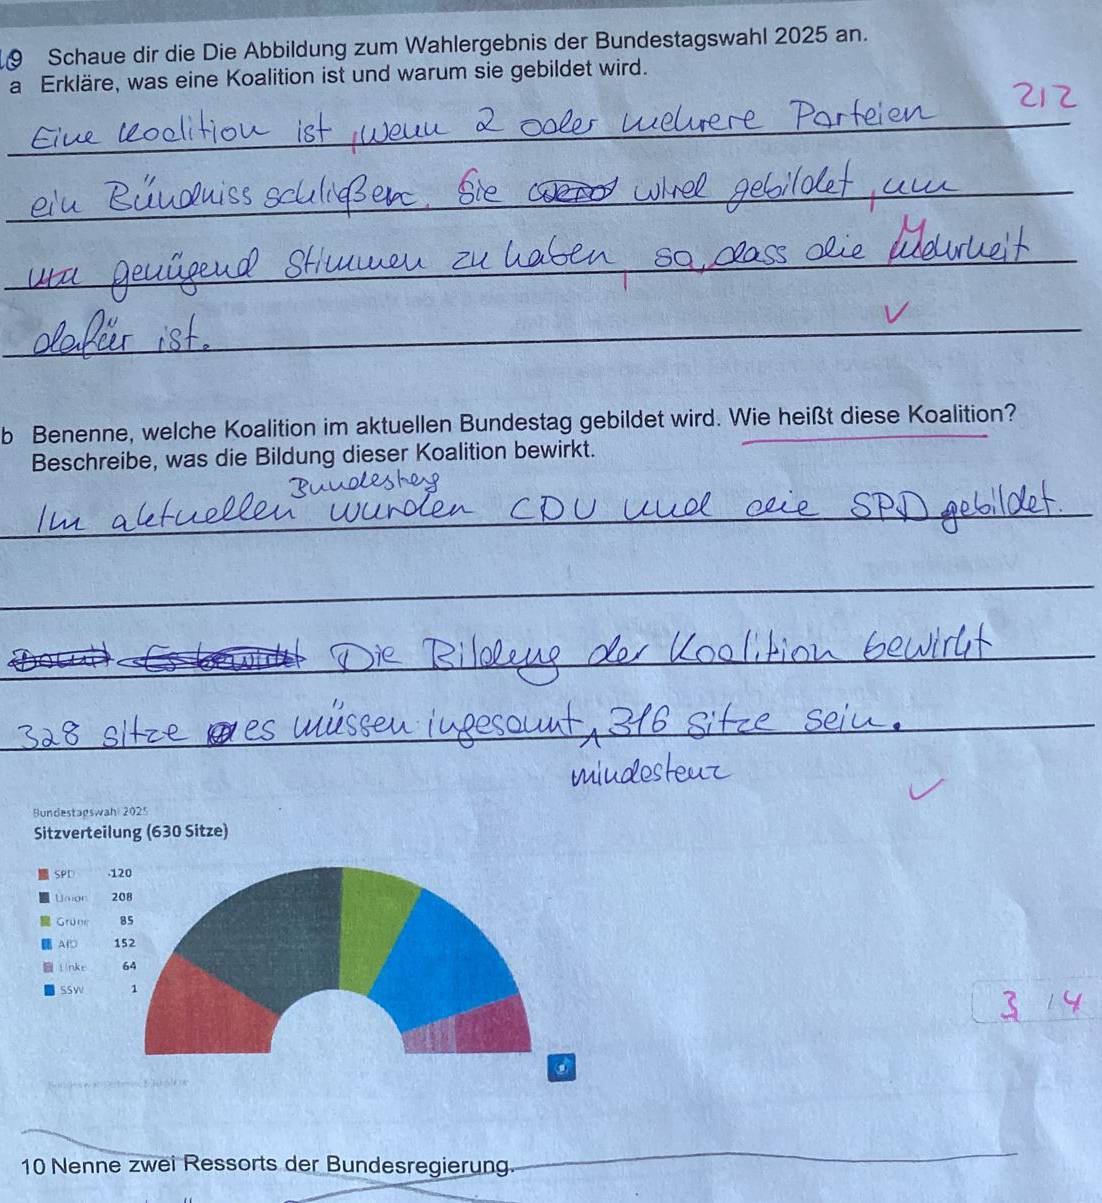 19 Schaue dir die Die Abbildung zum Wahlergebnis der Bundestagswahl 2025 an.
a Erkläre, was eine Koalition ist und warum sie gebildet wird.
2/2
Eine Koalition ist, wenn 2 oder mehrere Parteien
ein Bündniss schließen. Sie wird gebildet, um
genügend Stimmen zu haben, so, dass die Mehrheit
dafür ist.
b Benenne, welche Koalition im aktuellen Bundestag gebildet wird. Wie heißt diese Koalition?
Beschreibe, was die Bildung dieser Koalition bewirkt.
Bundesteg
Im aktuellen wurden CDU und die SPD gebildet.
Die Bildung der Koalition bewirkt
328 sitze es müssen ingesamt 316 sitze sein.
mindestens
Bundestagswahl 2025
Sitzverteilung (630 Sitze)
SPD 120
Union 208
Grüne 85
AfD 152
Linke 64
SSW 1
3 / 4
10 Nenne zwei Ressorts der Bundesregierung.